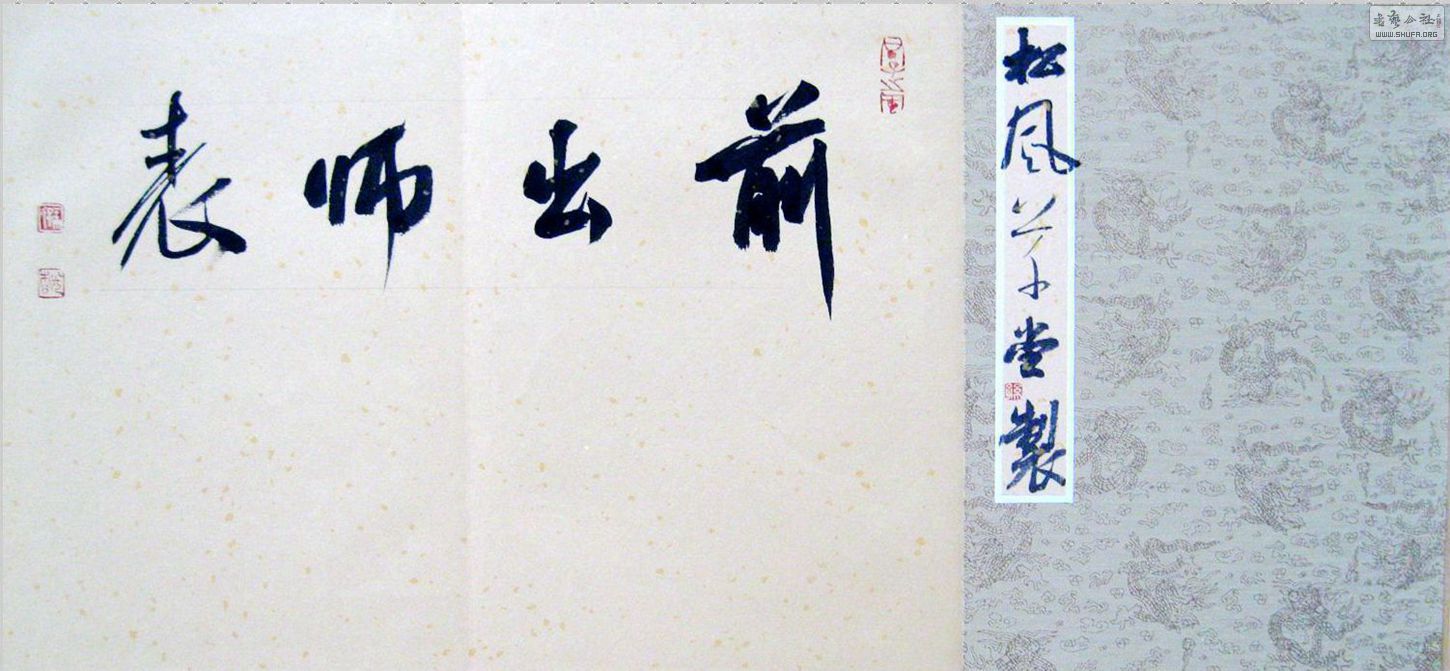 松風草堂製
前出师表
書藝公社
WWW.SHUFA.ORG